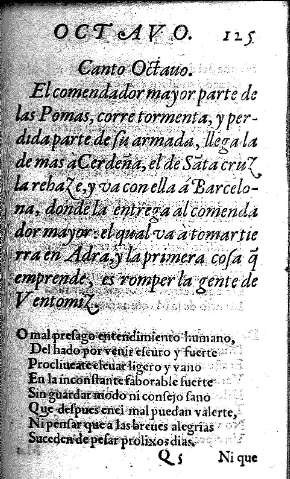 OCTAVO. 125
Canto Octauo.
El comendador mayor parte de
las Pomas, corre tormenta, y per-
dida parte de su armada, llega la
de mas a Cerdeña, el de Sãta cruz
la rehaze, y va con ella â Barcelo-
na, donde la entrega al comenda
dor mayor: el qual va à tomar tie
rra en Adra, y la primera cosa q̃
emprende, es romper la gente de
Ventomiz.
O mal presago entendimiento humano,
Del hado por venir escuro y fuerte
Procliue a leuar ligero y vano
En la inconstante faborable suerte
Sin guardar modo ni consejo sano
Que despues en el mal puedan valerte,
Ni pensar que a las breues alegrias
Suceden de pesar prolixos dias.
Q 5 Ni que